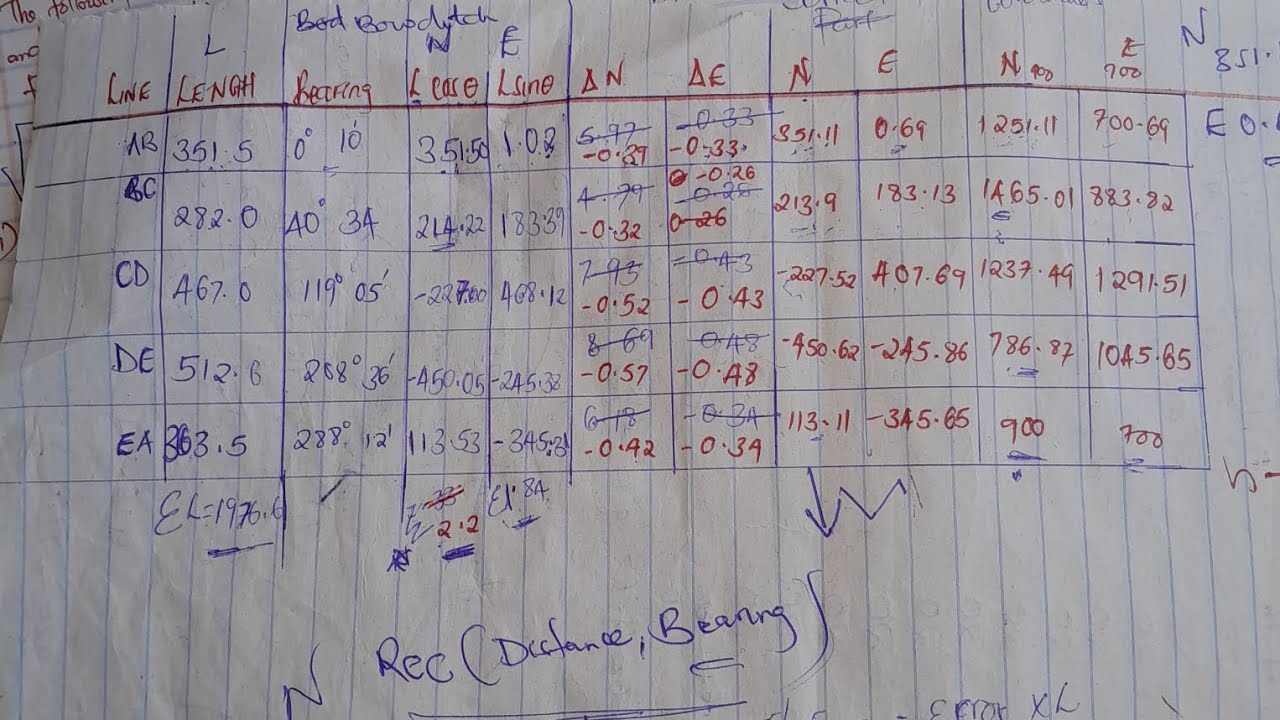 The following
and
L N E N
351.
LINE LENGTH Bearing L cosθ Lsinθ ΔN ΔE N E N 900 E 700
AB 351.5 0° 10' 351.50 1.02 5.97 -0.39 -0.33 -0.33 351.11 0.69 1251.11 700.69 E 0.
BC 282.0 40° 34 214.22 183.39 4.79 -0.32 -0.26 -0.26 0.26 213.9 183.13 1465.01 883.82
CD 467.0 119° 05' -227.00 408.12 7.95 -0.52 -0.43 -0.43 -227.52 407.69 1237.49 1291.51
DE 512.6 208° 36' -450.05 -245.38 8.69 -0.57 -0.48 -0.48 -450.62 -245.86 786.87 1045.65
EA 363.5 288° 12' 113.53 -345.31 6.18 -0.42 -0.34 -0.34 113.11 -345.65 900 700
ΣL=1976.6 Σ 2.2 Σ1.84
Rec (Distance, Bearing)
- Error x L